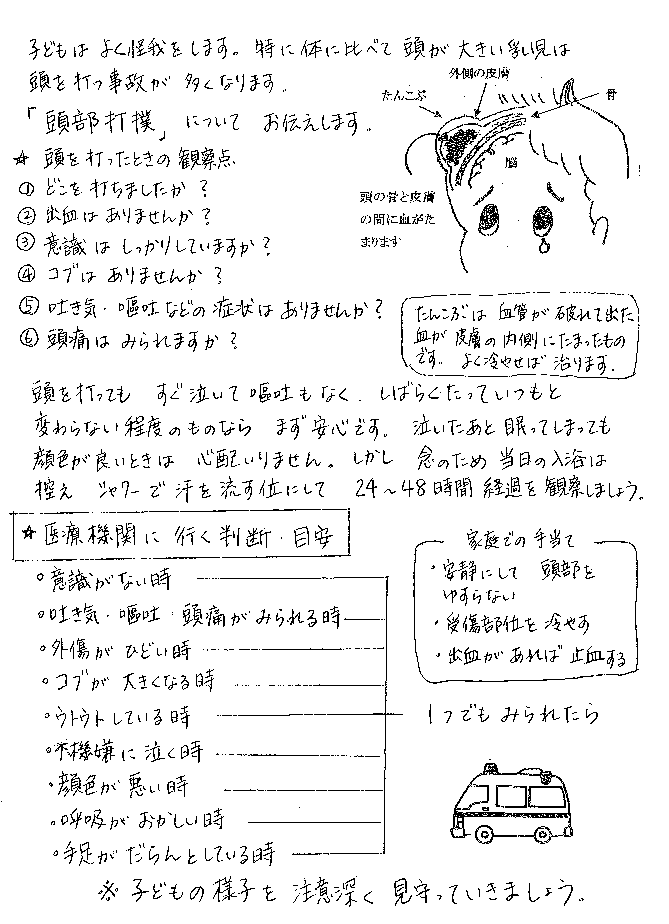 子どもは よく怪我をします。特に体に比べて 頭が 大きい乳児は
頭を打つ事故が 多くなります。
「頭部打撲」 について お伝えします。
外側の皮膚
たんこぶ
骨
脳
頭の骨と皮膚
の間に血がた
まります
☆ 頭を打ったときの観察点
① どこを打ちましたか？
② 出血はありませんか？
③ 意識は しっかりしていますか？
④ コブは ありませんか？
⑤ 吐き気・嘔吐などの症状はありませんか？
⑥ 頭痛は みられますか？
たんこぶは 血管が 破れて出た
血が皮膚の内側にたまったもの
です。 よく冷やせば 治ります。
頭を打っても すぐ泣いて 嘔吐もなく、しばらくたっていつもと
変わらない程度のものなら まず安心です。 泣いたあと 眠ってしまっても
顔色が良いときは 心配いりません。しかし 念のため 当日の入浴は
控え シャワーで汗を流す位にして 24～48時間 経過を観察しましょう。
☆ 医療機関に 行く判断・目安
○意識がない時
○吐き気・嘔吐・頭痛がみられる時
○外傷が ひどい時
○コブが 大きくなる時
○ウトウトしている時
○不機嫌に泣く時
・顔色が悪い時
○呼吸が おかしい時
○手足が だらんとしている時
1つでも みられたら
家庭での手当て
・安静にして 頭部を
ゆすらない
・受傷部位を冷やす
・出血があれば 止血する
※ 子どもの様子を 注意深く 見守っていきましょう。